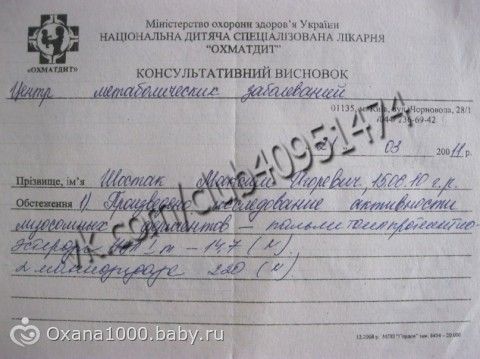 Міністерство охорони здоров'я України
НАЦІОНАЛЬНА ДИТЯЧА СПЕЦІАЛІЗОВАНА ЛІКАРНЯ
"ОХМАТДИТ"
«ОХМАТДИТ»
КОНСУЛЬТАТИВНИЙ ВИСНОВОК
Центр метаболических заболеваний
01135, м. Київ, вул. Чорновола, 28/1
236-69-42
03 200 11 р.
Прізвище, ім'я Шостак Игоревич, 15.08.10 г.р.
Обстеження 1) Произведено исследование активности
лизосомных - пальмитоилпротеинтио-
14,7 (N)
220 (N)
vk.com/club40951474
Oxana1000.baby.ru